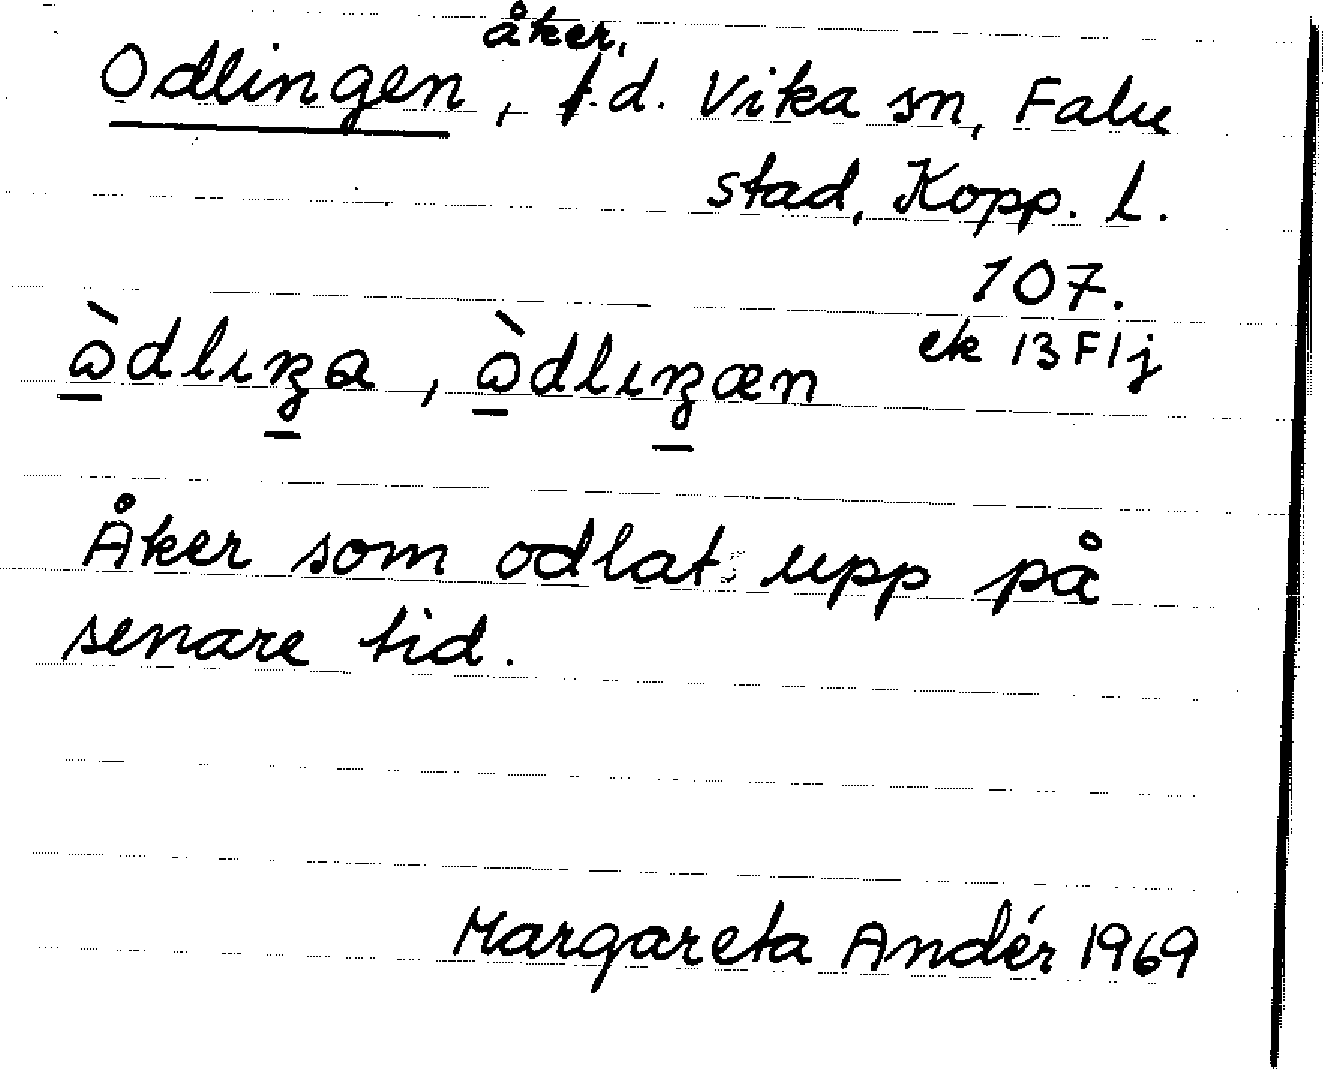 Odlingen, åker, f.d. Vika sn, Falu
stad, Kopp. l.
107.
ek 13 F 1 j
Åker som odlats upp på
senare tid.
Margareta Andér 1969